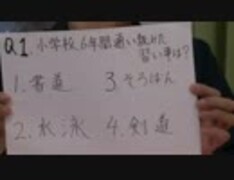 Q1. 小学校6年間通い続けた
習い事は?
1. 書道 3. そろばん
2. 水泳 4. 剣道